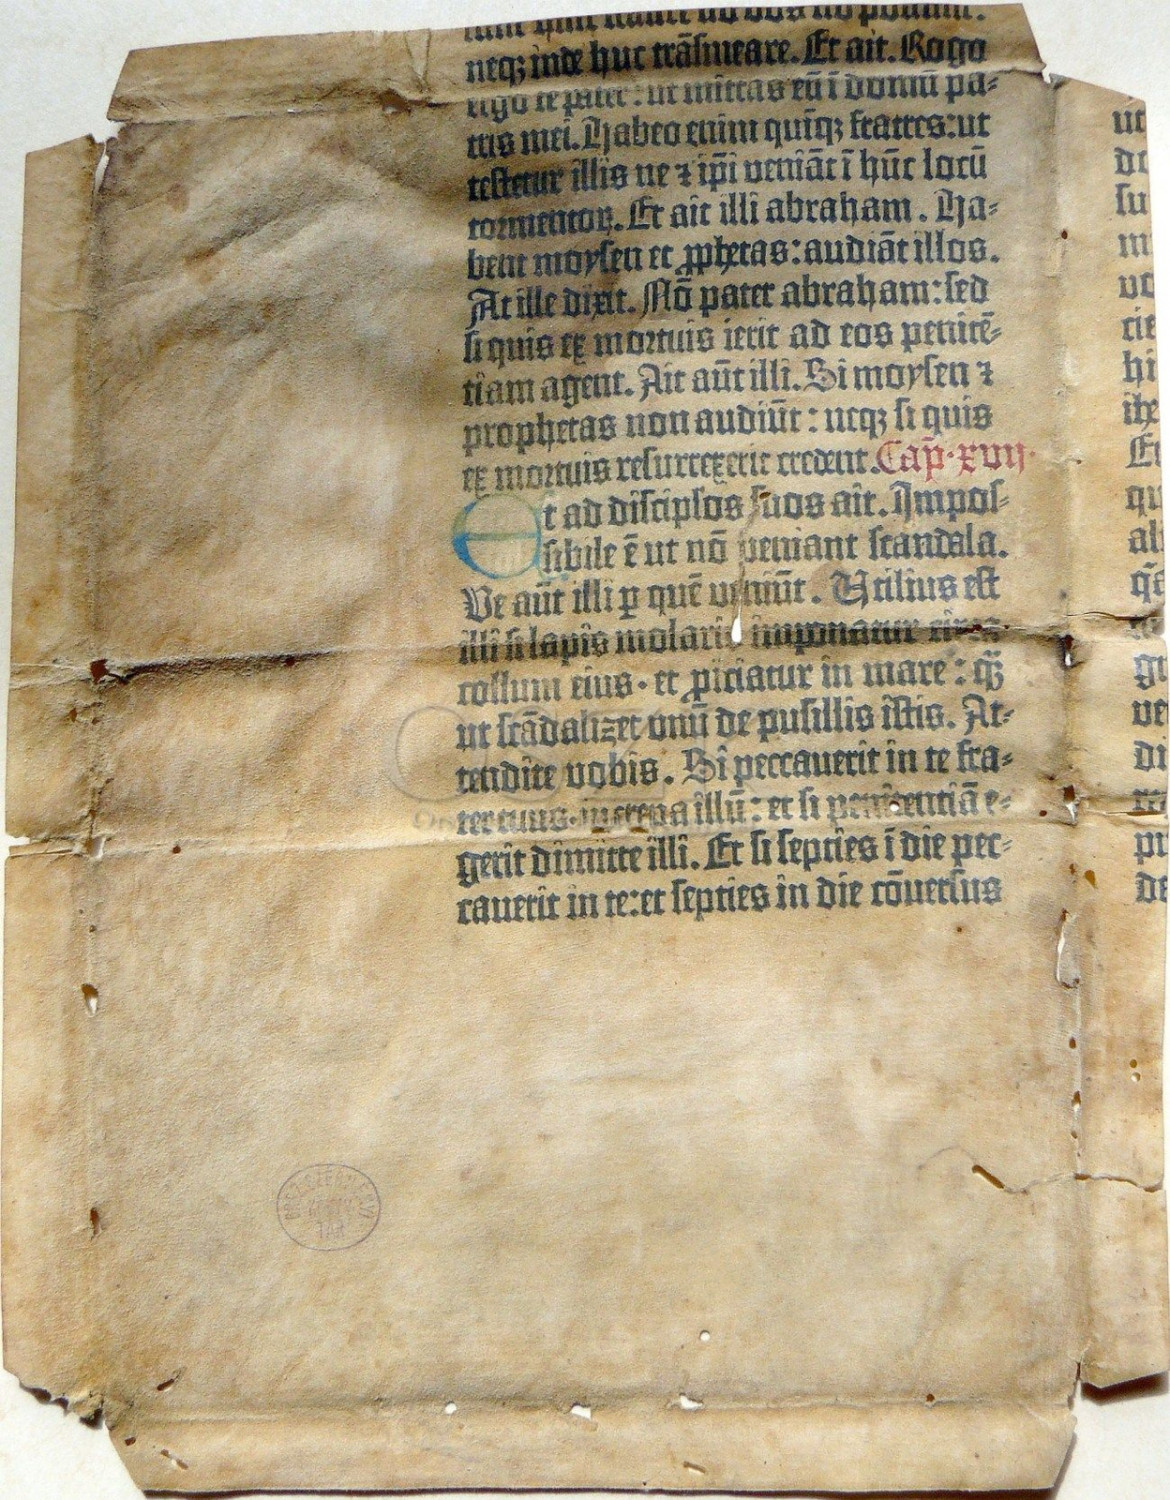 neqꝫ inde huc trãsmeare. Et ait. Rogo
ergo te pater: ut mittas eũ ĩ domũ pa⸗
tris mei. Habeo enim quĩqꝫ fratres: ut
testetur illis ne ⁊ ip̃i veniãt ĩ hũc locũ
tormentoꝝ. Et ait illi abraham. Ha⸗
bent moysen et ꝓphetas: audiãt illos.
At ille dixit. Nõ pater abraham: sed
si quis ex mortuis ierit ad eos penitẽ⸗
tiam agent. Ait aũt illi. Si moysen ⁊
prophetas non audiũt: neqꝫ si quis
ex mortuis resurrexerit credent. Cap̃. xvij.
Et ad discip̃los suos ait. Impos⸗
sibile ẽ ut nõ veniant scandala.
Ve aũt illi ꝑ quẽ veniũt. Utilius est
illi si lapis molaris imponatur circa
collum eius. et ꝓiciatur in mare: qꝫ̃
ut scãdalizet unũ de pusillis istis. At⸗
tendite vobis. Si peccauerit in te fra⸗
ter tuus. increpa illũ: et si penitentiã e⸗
gerit dimitte illi. Et si septies ĩ die pec⸗
cauerit in te: et septies in die cõuersus
ut
su
hi
Et
qu
ali
ve
di
pr
de